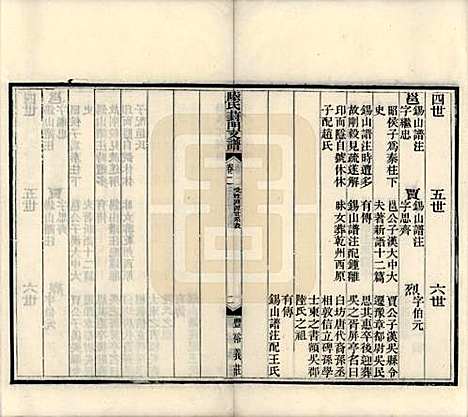 四世
邕
錫山譜注
字繼忠
昭侯子爲秦柱下
史
錫山譜注時遭多
故剛毅見疏遂解
印而隱自號休休
子配趙氏
五世
賈
錫山譜注
字思齊
邕公子漢大中大
夫著新語十二篇
有傳
錫山譜注配鍾離
昧女葬乾州西原
六世
烈
字伯元
賈公子漢吳縣令
遷豫章都尉吳民
思其惠卒後迎葬
吳之胥屏亭名曰
白坊唐代裔孫丞
相敦信立碑孫學
士柬之書額吳郡
陸氏之祖
有傳
錫山譜注配王氏
陸氏葑門支譜
卷二
二
豐裕義莊